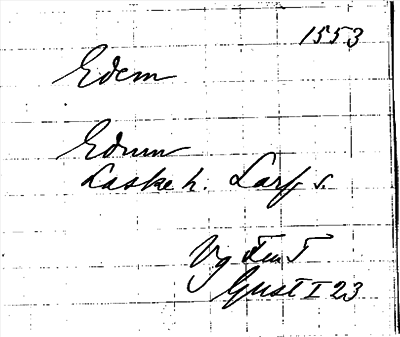 1553
Edem
Edum
Laske h. Larss s.
Vg Fem T
Gust I 23